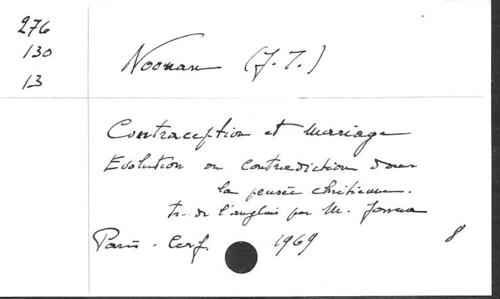 276
130
13
Noonan (J. T.)
Contraception et mariage
Evolution ou contradiction dans
la pensée chrétienne.
tr. de l'anglais par M. Jossua
Paris - Cerf. 1969
8